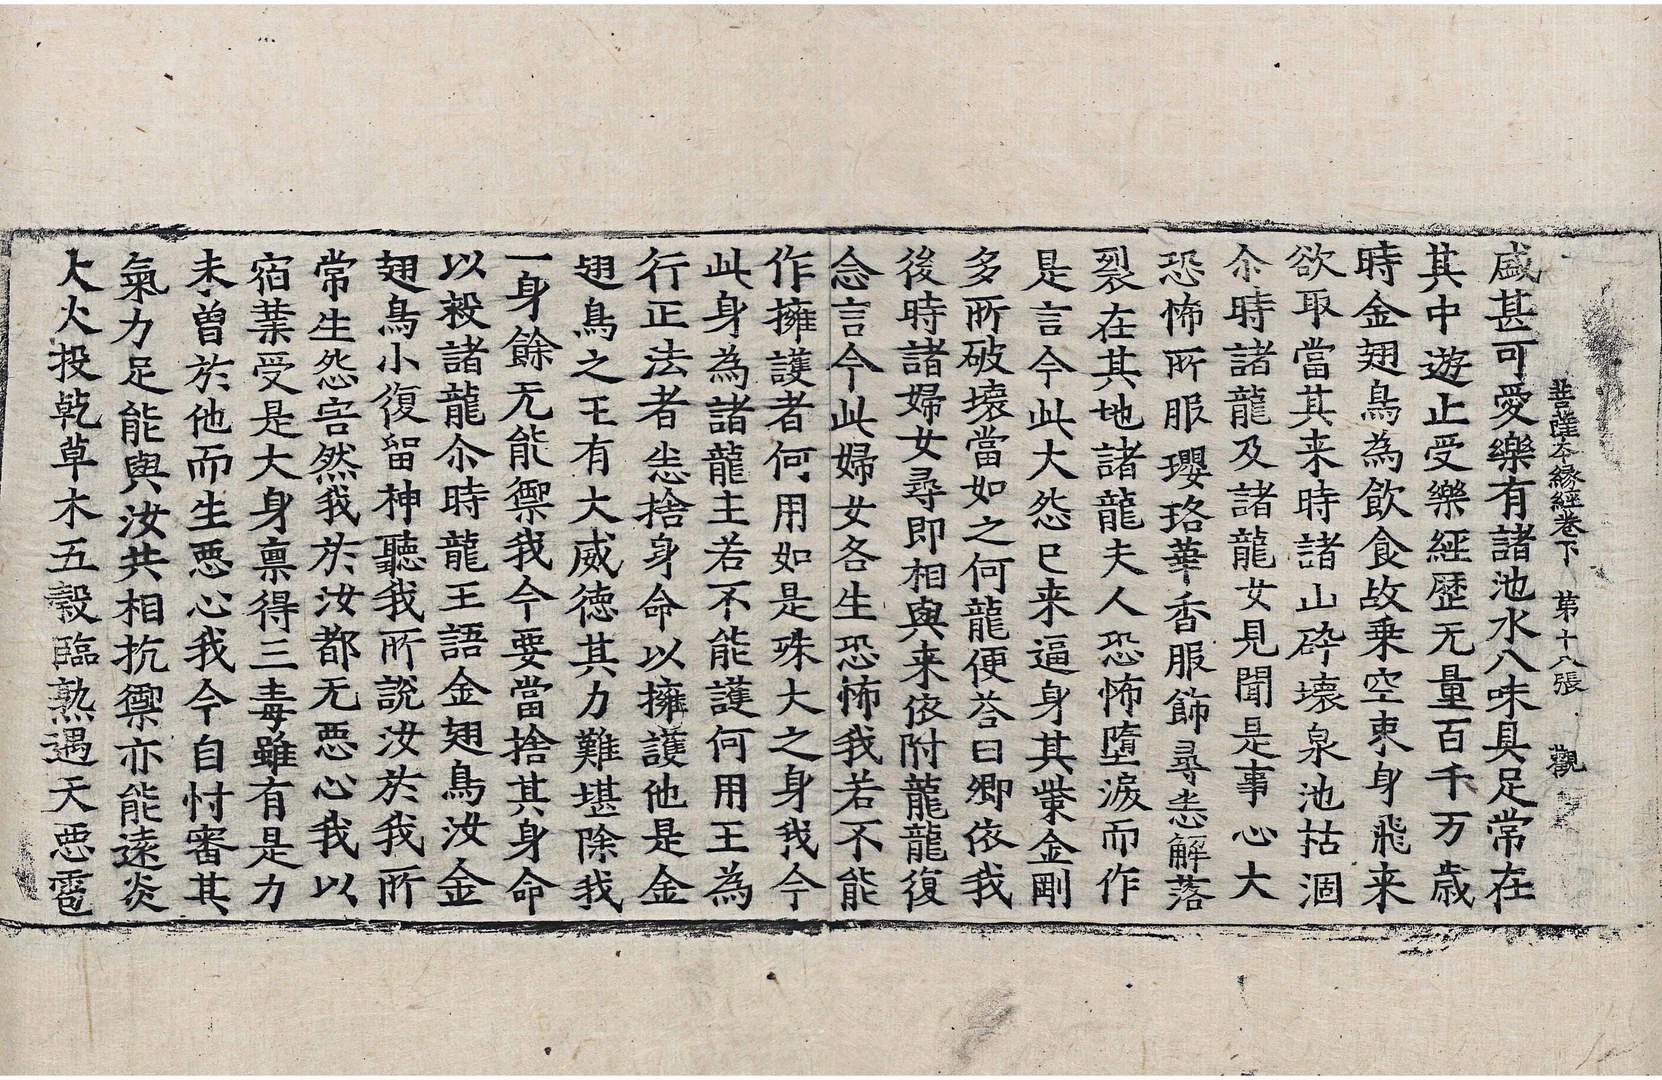 菩薩本縁經卷下　第十八張　觀
盛甚可愛樂有諸池水八味具足常在
其中遊止受樂經歷无量百千万歲
時金翅鳥為飲食故乗空束身飛来
欲取當其来時諸山碎壞泉池枯涸
尒時諸龍及諸龍女見聞是事心大
恐怖所服瓔珞華香服飾尋恚解落
裂在其地諸龍夫人恐怖墮淚而作
是言今此大怨已来逼身其𭉨金剛
多所破壞當如之何龍便荅曰卿依我
後時諸婦女尋即相與来依附龍龍復
念言今此婦女各生恐怖我若不能
作擁護者何用如是殊大之身我今
此身為諸龍主若不能護何用王為
行正法者悉捨身命以擁護他是金
翅鳥之王有大威德其力難堪除我
一身餘无能禦我今要當捨其身命
以救諸龍尒時龍王語金翅鳥汝金
翅鳥小復留神聽我所說汝於我所
常生怨害然我於汝都无惡心我以
宿業受是大身禀得三毒雖有是力
未曽於他而生惡心我今自忖審其
氣力足能與汝共相抗禦亦能遠炎
大火投乾草木五糓臨熟遇天惡雹